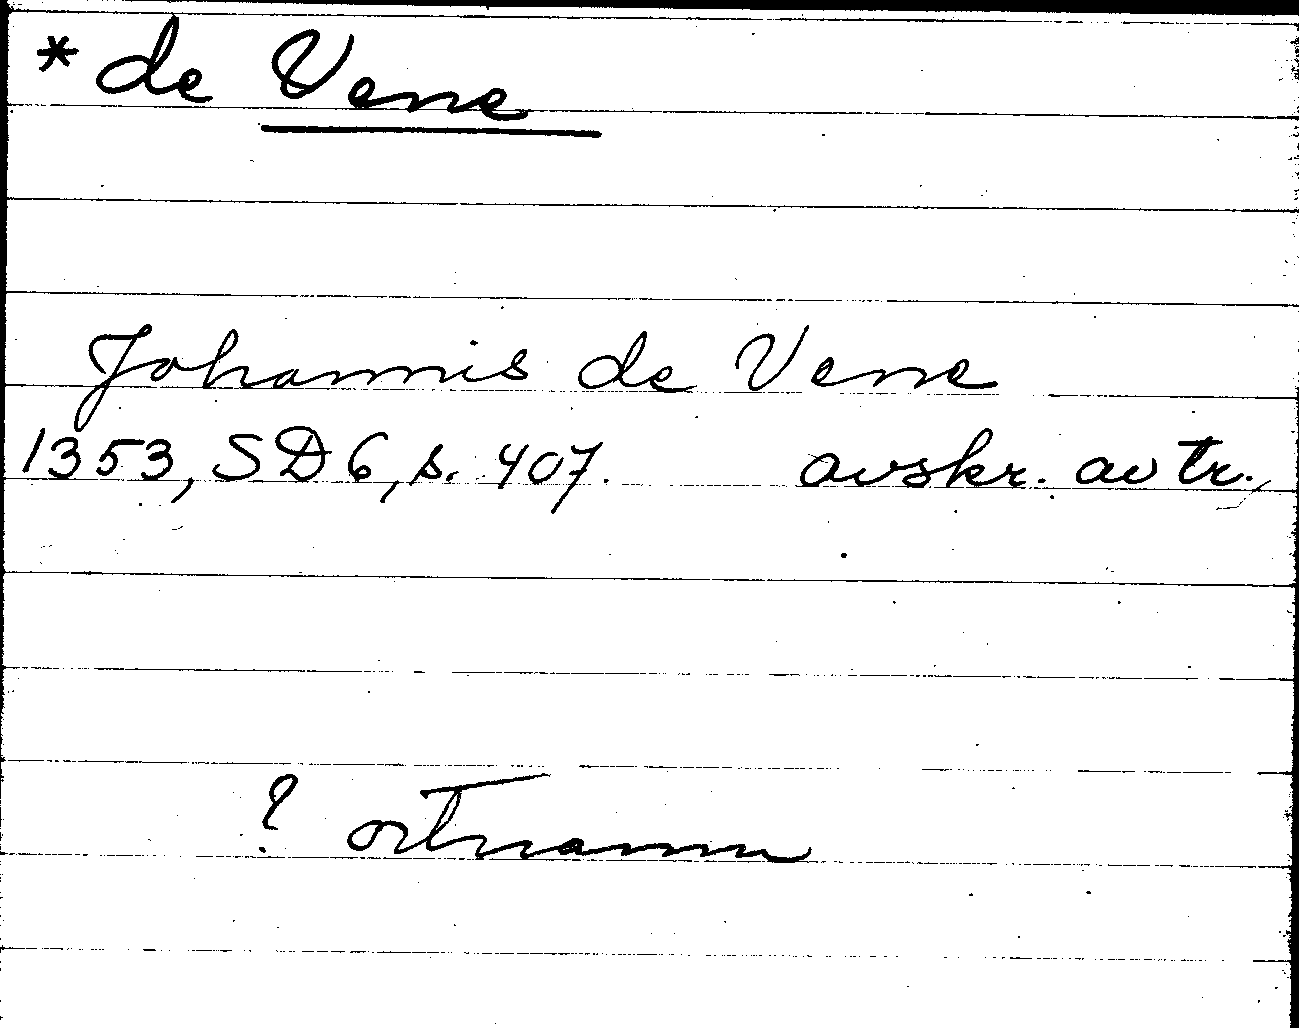 * de Vene
Johannis de Vene
1353, SD 6, s. 407. avskr. av tr.
? ortnamn